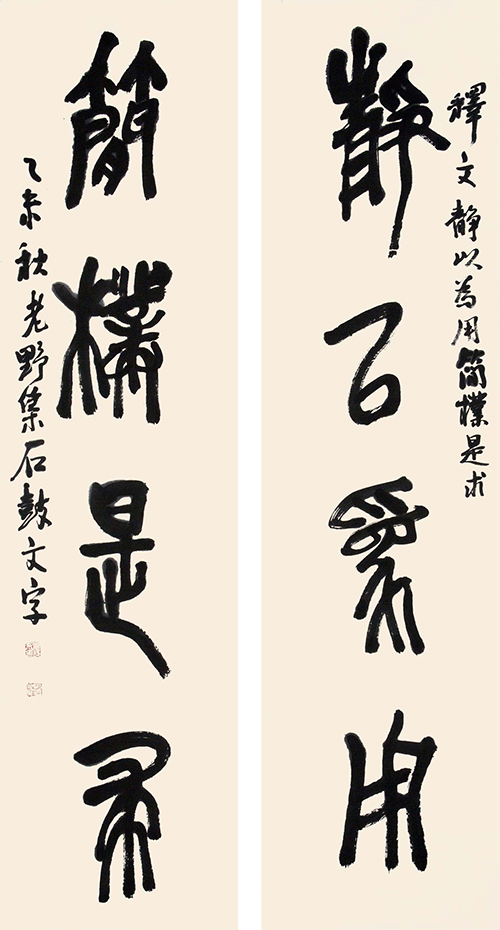 釋文靜以為用簡樸是求
靜以為用
簡樸是求
乙未秋老野集石鼓文字